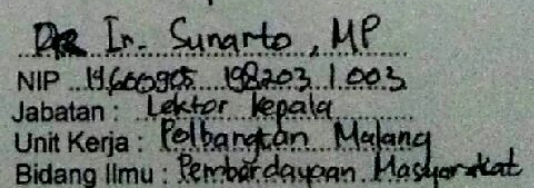 Ir. Sunarto, MP
NIP 19600905 198203 1 003
Jabatan : Lektor kepala
Unit Kerja : Polbangtan Malang
Bidang Ilmu : Pembardayaan Masyarakat